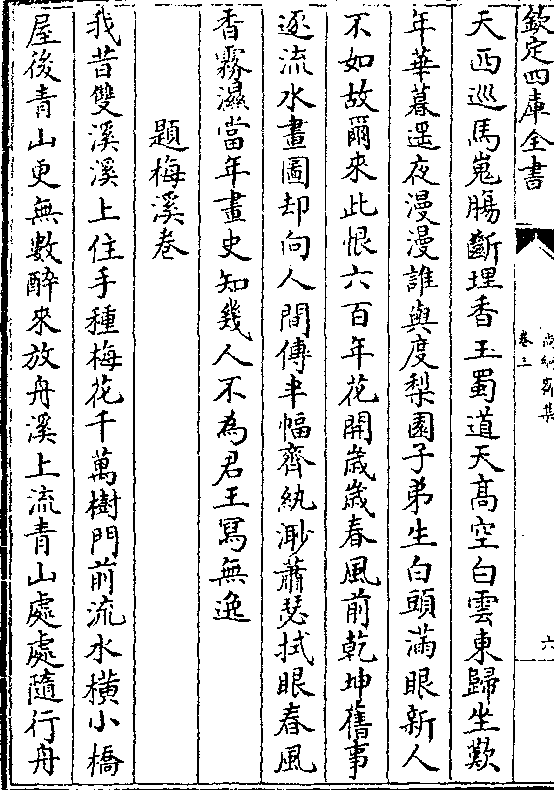 欽定四庫全書
卷三
六
天西巡馬嵬腸斷埋香玉蜀道天髙空白雲東歸坐歎
年華暮遥夜漫漫誰與度梨園子弟生白頭滿眼新人
不如故爾來此恨六百年花開歲歲春風前乾坤舊事
逐流水畫圖却向人間傳半幅齊紈渺蕭瑟拭眼春風
香霧濕當年畫史知幾人不為君王寫無逸
題梅溪卷
我昔雙溪溪上住手種梅花千萬樹門前流水橫小橋
屋後青山更無數醉來放舟溪上流青山處處隨行舟